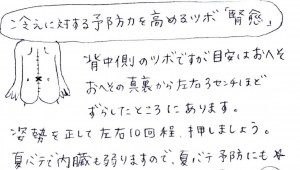 冷えに対する予防力を高めるツボ「腎愈」
背中側のツボですが目安はおへそ
おへその真裏から左右3センチほど
ずらしたところにあります。
姿勢を正して左右10回程、押しましょう。
夏バテで内臓も弱りますので、夏バテ予防にも